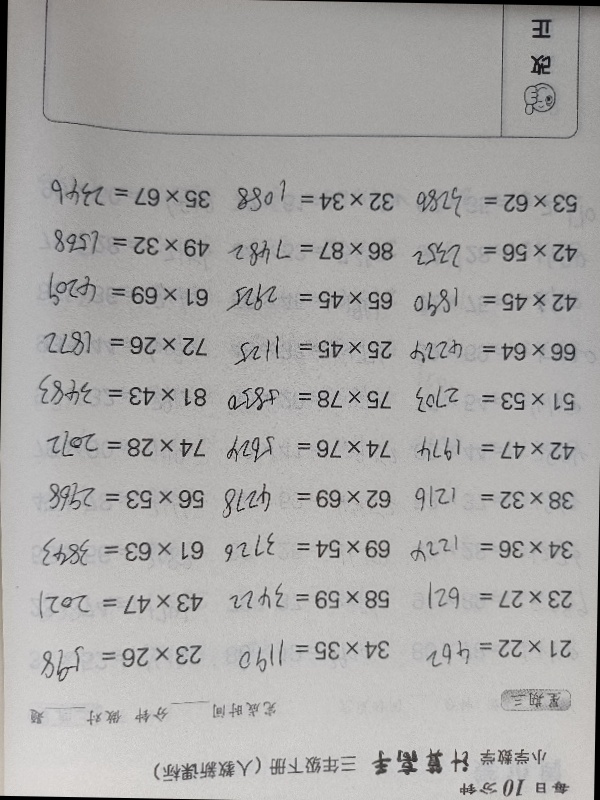 每日10分钟
小学数学 计算高手 三年级下册（人教新课标）
星期三 完成时间____分钟 做对____题
21×22=462 34×35=1190 23×26=598
23×27=621 58×59=3422 43×47=2021
34×36=1224 69×54=3726 61×63=3843
38×32=1216 62×69=4278 56×53=2968
42×47=1974 74×76=5624 74×28=2072
51×53=2703 75×78=5850 81×43=3483
66×64=4224 25×45=1125 72×26=1872
42×45=1890 65×45=2925 61×69=4209
42×56=2352 86×87=7482 49×32=1568
53×62=3286 32×34=1088 35×67=2346
改
正